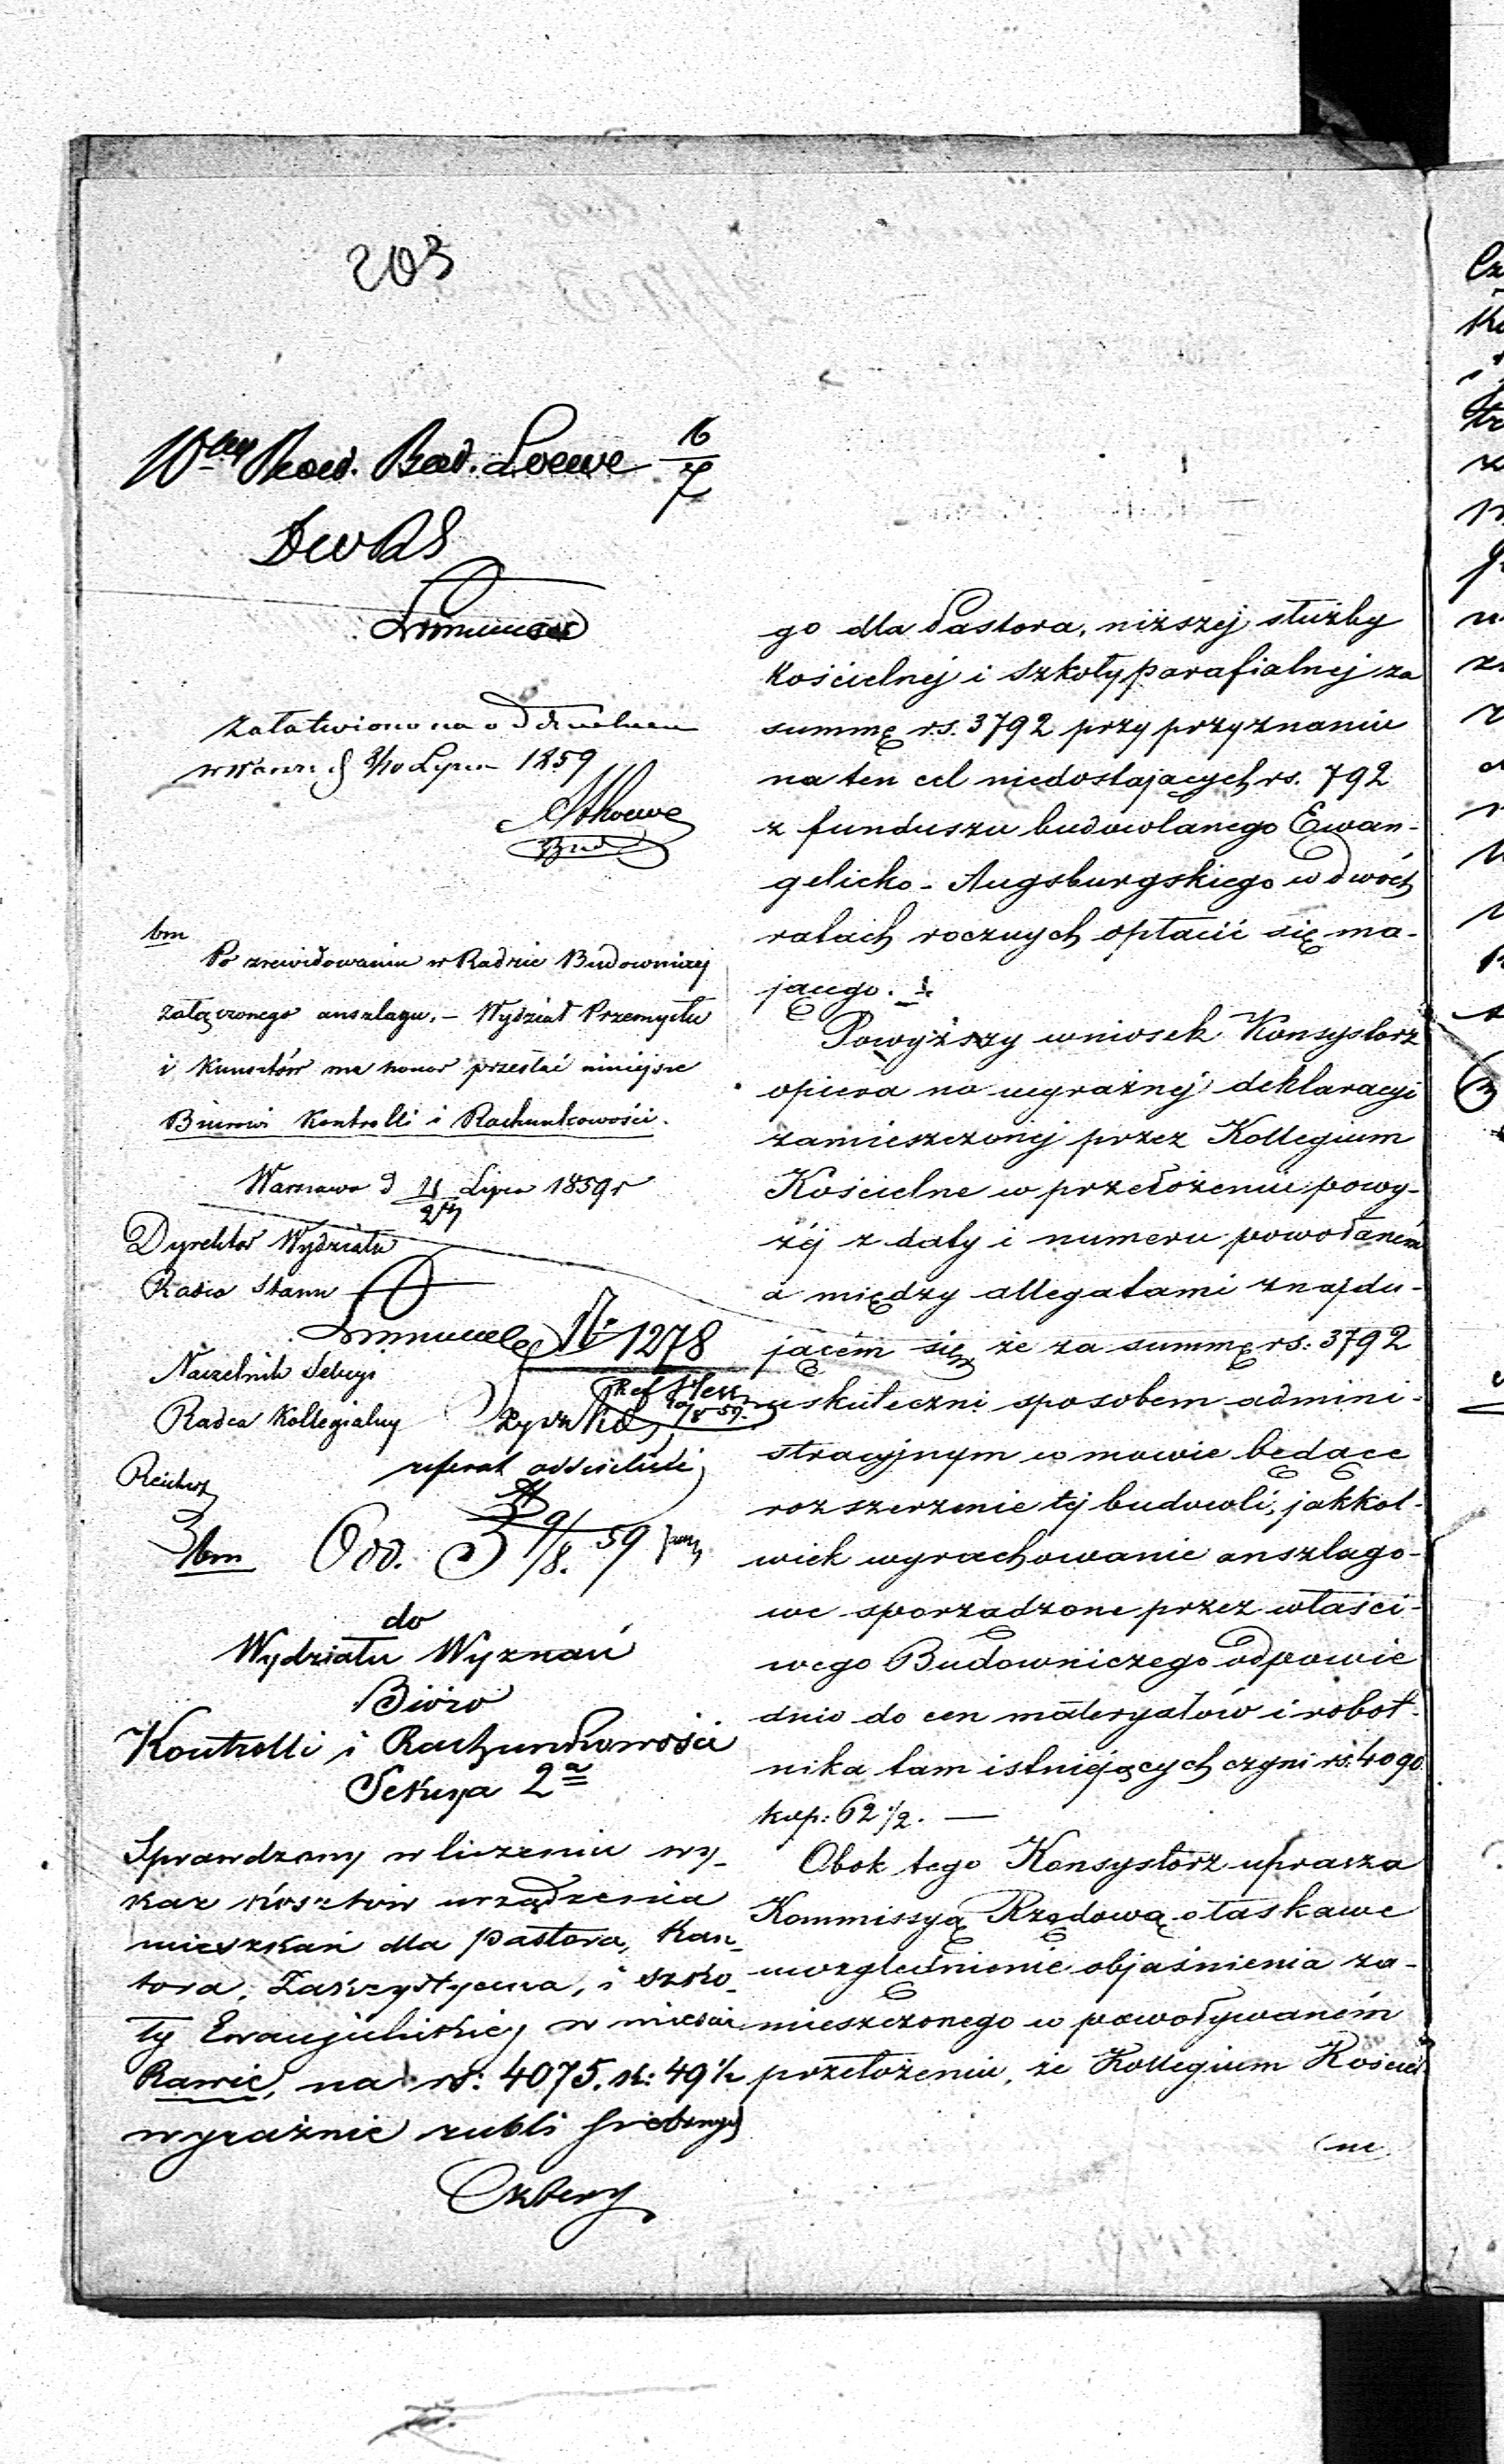 203
Rad. Bud. Loewe 16/7
załatwiono na oddzielnem
w Warsz. d 9/10 Lipca 1859
Loewe
Bud
bm
Po zrewidowaniu w Radzie Budowniczej
załączonego anszlagu, – Wydział Przemysłu
i Kunsztów ma honor przesłać niniejsze
Biurowi Kontrolli i Rachunkowości.
Warszawa d Lipca 1859 r
Dyrektor Wydziału
Radca Stanu
№ 1278
Naczelnik Sekcyi
Radca Kollegialny
referat
bm Odd. 3 9/8. 59
do
Wydziału Wyznań
Bióro
Kontrolli i Rachunkowości
Sekcya 2a
Sprawdzony w liczeniu wy-
kaz kosztów urządzenia
mieszkań dla Pastora, Kan-
tora, Zakrystyana, i szko-
ły Ewangelickiej w mieście
Rawie, na rs: 4075. k: 49 1/2
wyraźnie rubli srebrnych
go dla Pastora, niższej służby
Kościelnej i szkoły parafialnej za
summę rs. 3792 przy przyznaniu
na ten cel niedostających rs. 792
z funduszu budowlanego Ewan-
gelicko-Augsburgskiego w dwóch
ratach rocznych opłacić się ma-
jącego.
Powyższy wniosek Konsystorz
opiera na wyraźnej deklaracyi
zamieszczonej przez Kollegium
Kościelne w przełożeniu powy-
żej z daty i numeru powołaném
a między allegatami znajdu-
jącém się że za summę rs: 3792
uskuteczni sposobem admini-
stracyjnym w mowie będące
rozszerzenie tej budowli, jakkol-
wiek wyrachowanie anszlago-
we sporządzone przez właści-
wego Budowniczego odpowie
dnio do cen materyałów i robot-
nika tam istniejących czyni rs: 4090
kop: 62 1/2. —
Obok tego Konsystorz uprasza
Kommissyą Rządową o łaskawe
uwzględnienie objaśnienia za-
mieszczonego w powoływaném
przełożeniu, że Kollegium Kościel
(ne